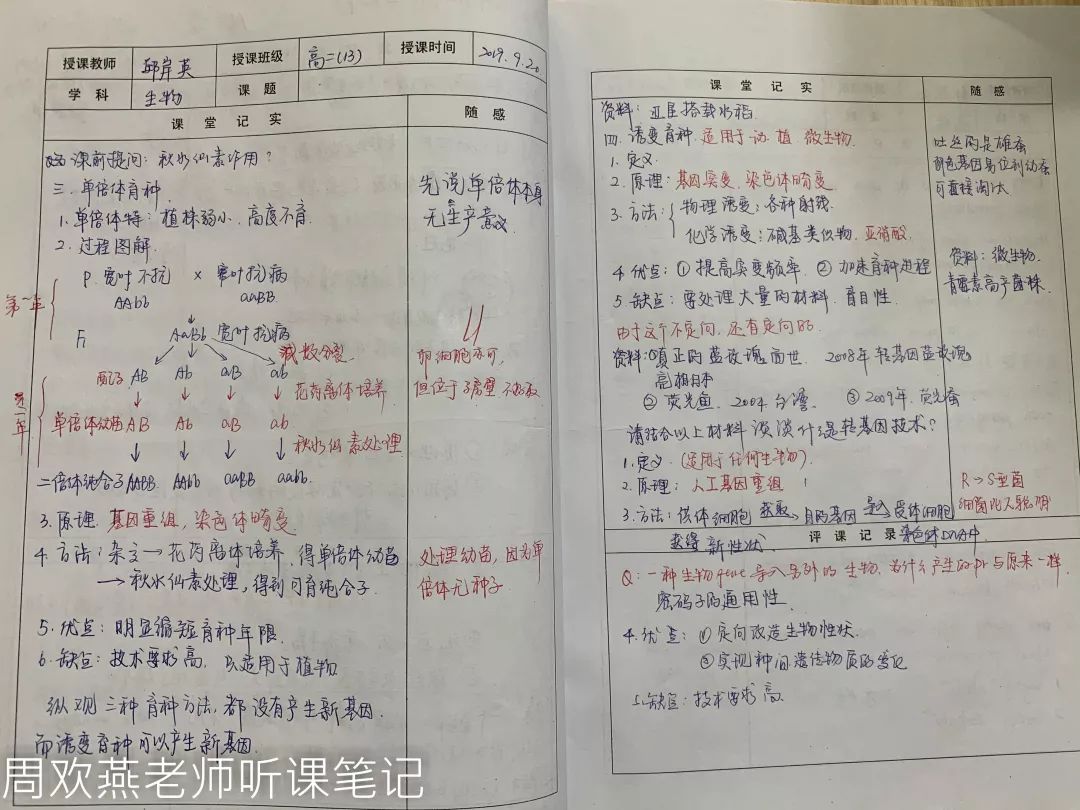 授课教师 邱岸英 授课班级 高二(13) 授课时间 2019.9.20
学科 生物 课题
课堂记实 随感
课前提问: 秋水仙素作用?
三.单倍体育种
1.单倍体特: 植株弱小.高度不育.
2.过程图解.
第一年
P. 宽叶不抗 × 窄叶抗病
AAbb aaBB
F₁ AaBb 宽叶抗病
减数分裂
第二年
配子 AB Ab aB ab
花药离体培养
单倍体幼苗 AB Ab aB ab
秋水仙素处理
二倍体纯合子 AABB. AAbb aaBB aabb.
3.原理. 基因重组,染色体畸变
4.方法: 杂交→花药离体培养.得单倍体幼苗
→秋水仙素处理,得到可育纯合子.
5.优点: 明显缩短育种年限.
6.缺点: 技术要求高. 只适用于植物
纵观三种育种方法,都没有产生新基因.
而诱变育种可以产生新基因.
先说单倍体本身
无生产意义.
卵细胞亦可,
但位于子房里 不好取
处理幼苗,因为单
倍体无种子.
周欢燕老师听课笔记
课堂记实 随感
资料: 卫星搭载水稻.
四.诱变育种.适用于动.植.微生物.
1.定义.
2.原理: 基因突变.染色体畸变.
3.方法: 物理诱变: 各种射线.
化学诱变: 碱基类似物.亚硝酸.
4.优点: ①提高突变频率. ②加速育种进程
5.缺点: 要处理大量的材料. 盲目性.
由于这个不定向,还有定向的.
资料: ①真正的蓝玫瑰面世. 2008年转基因蓝玫瑰
亮相日本
②荧光鱼. 2004.台湾. ③2009年.荧光蚕
请结合以上材料谈谈什么是转基因技术?
1.定义.(适用于任何生物).
2.原理: 人工基因重组.
3.方法: 供体细胞 获取→目的基因 导入→受体细胞
获得新性状. 染色体DNA中
吐丝的是雄蚕
颜色基因易位到幼蚕
可直接淘汰
资料: 微生物.
青霉素高产菌株.
R→S型菌
细菌比人聪明
评课记录
Q: 一种生物gene导入另外的生物.为什么产生的pr与原来一样.
密码子的通用性.
4.优点: ①定向改造生物性状.
②实现种间遗传物质的变化
5.缺点: 技术要求高.